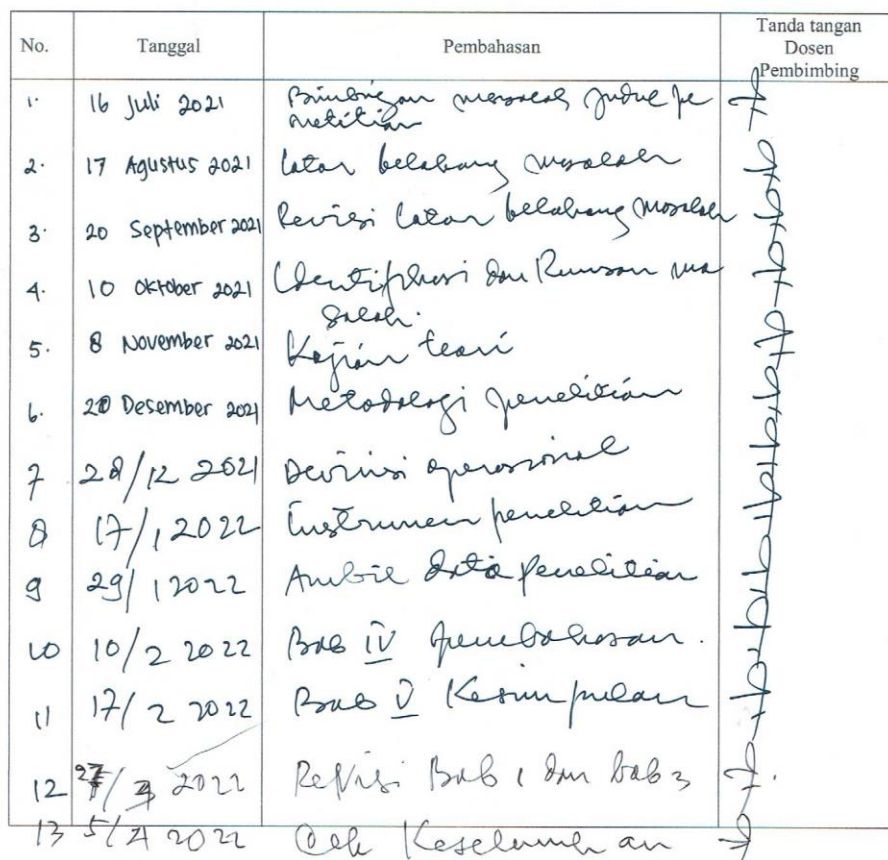 No. Tanggal Pembahasan Tanda tangan
Dosen
Pembimbing
1. 16 Juli 2021 Bimbingan masalah judul pe
nelitian
2. 17 Agustus 2021 latar belakang masalah
3. 20 September 2021 Revisi latar belakang masalah
4. 10 Oktober 2021 Identifikasi dan Rumusan ma
salah.
5. 8 November 2021 Kajian teori
6. Desember 2021 Metodologi penelitian
7 28/12 2021 Devinisi operasional
8 17/1 2022 Instrumen penelitian
9 29/1 2022 Ambil data penelitian
10 10/2 2022 Bab IV pembahasan.
11 17/2 2022 Bab V Kesimpulan
12 2022 Revisi Bab 1 dan bab 3
13 5/4 2022 Cek Keseluruhan